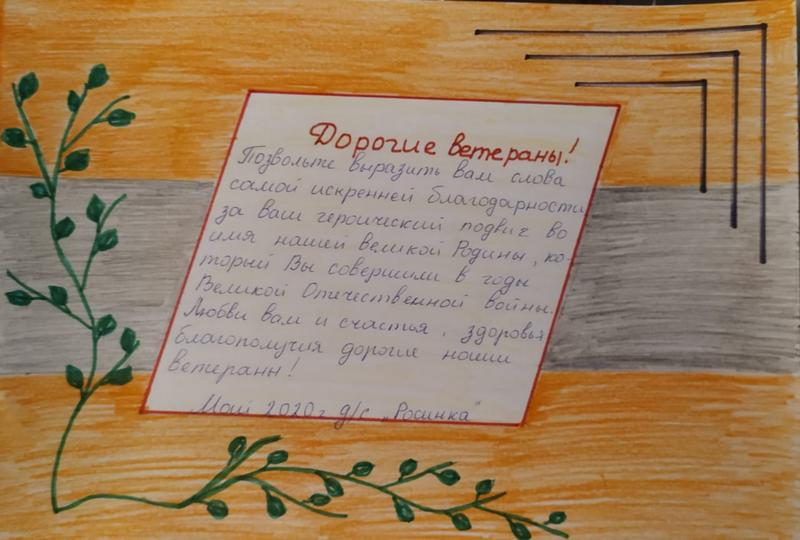 Дорогие ветераны!
Позвольте выразить вам слова
самой искренней благодарности
за ваш героический подвиг во
имя нашей великой Родины, ко-
торый Вы совершили в годы
Великой Отечественной войны.
Любви вам и счастья, здоровья
благополучия дорогие наши
ветераны!
Май 2020г д/с „Росинка"